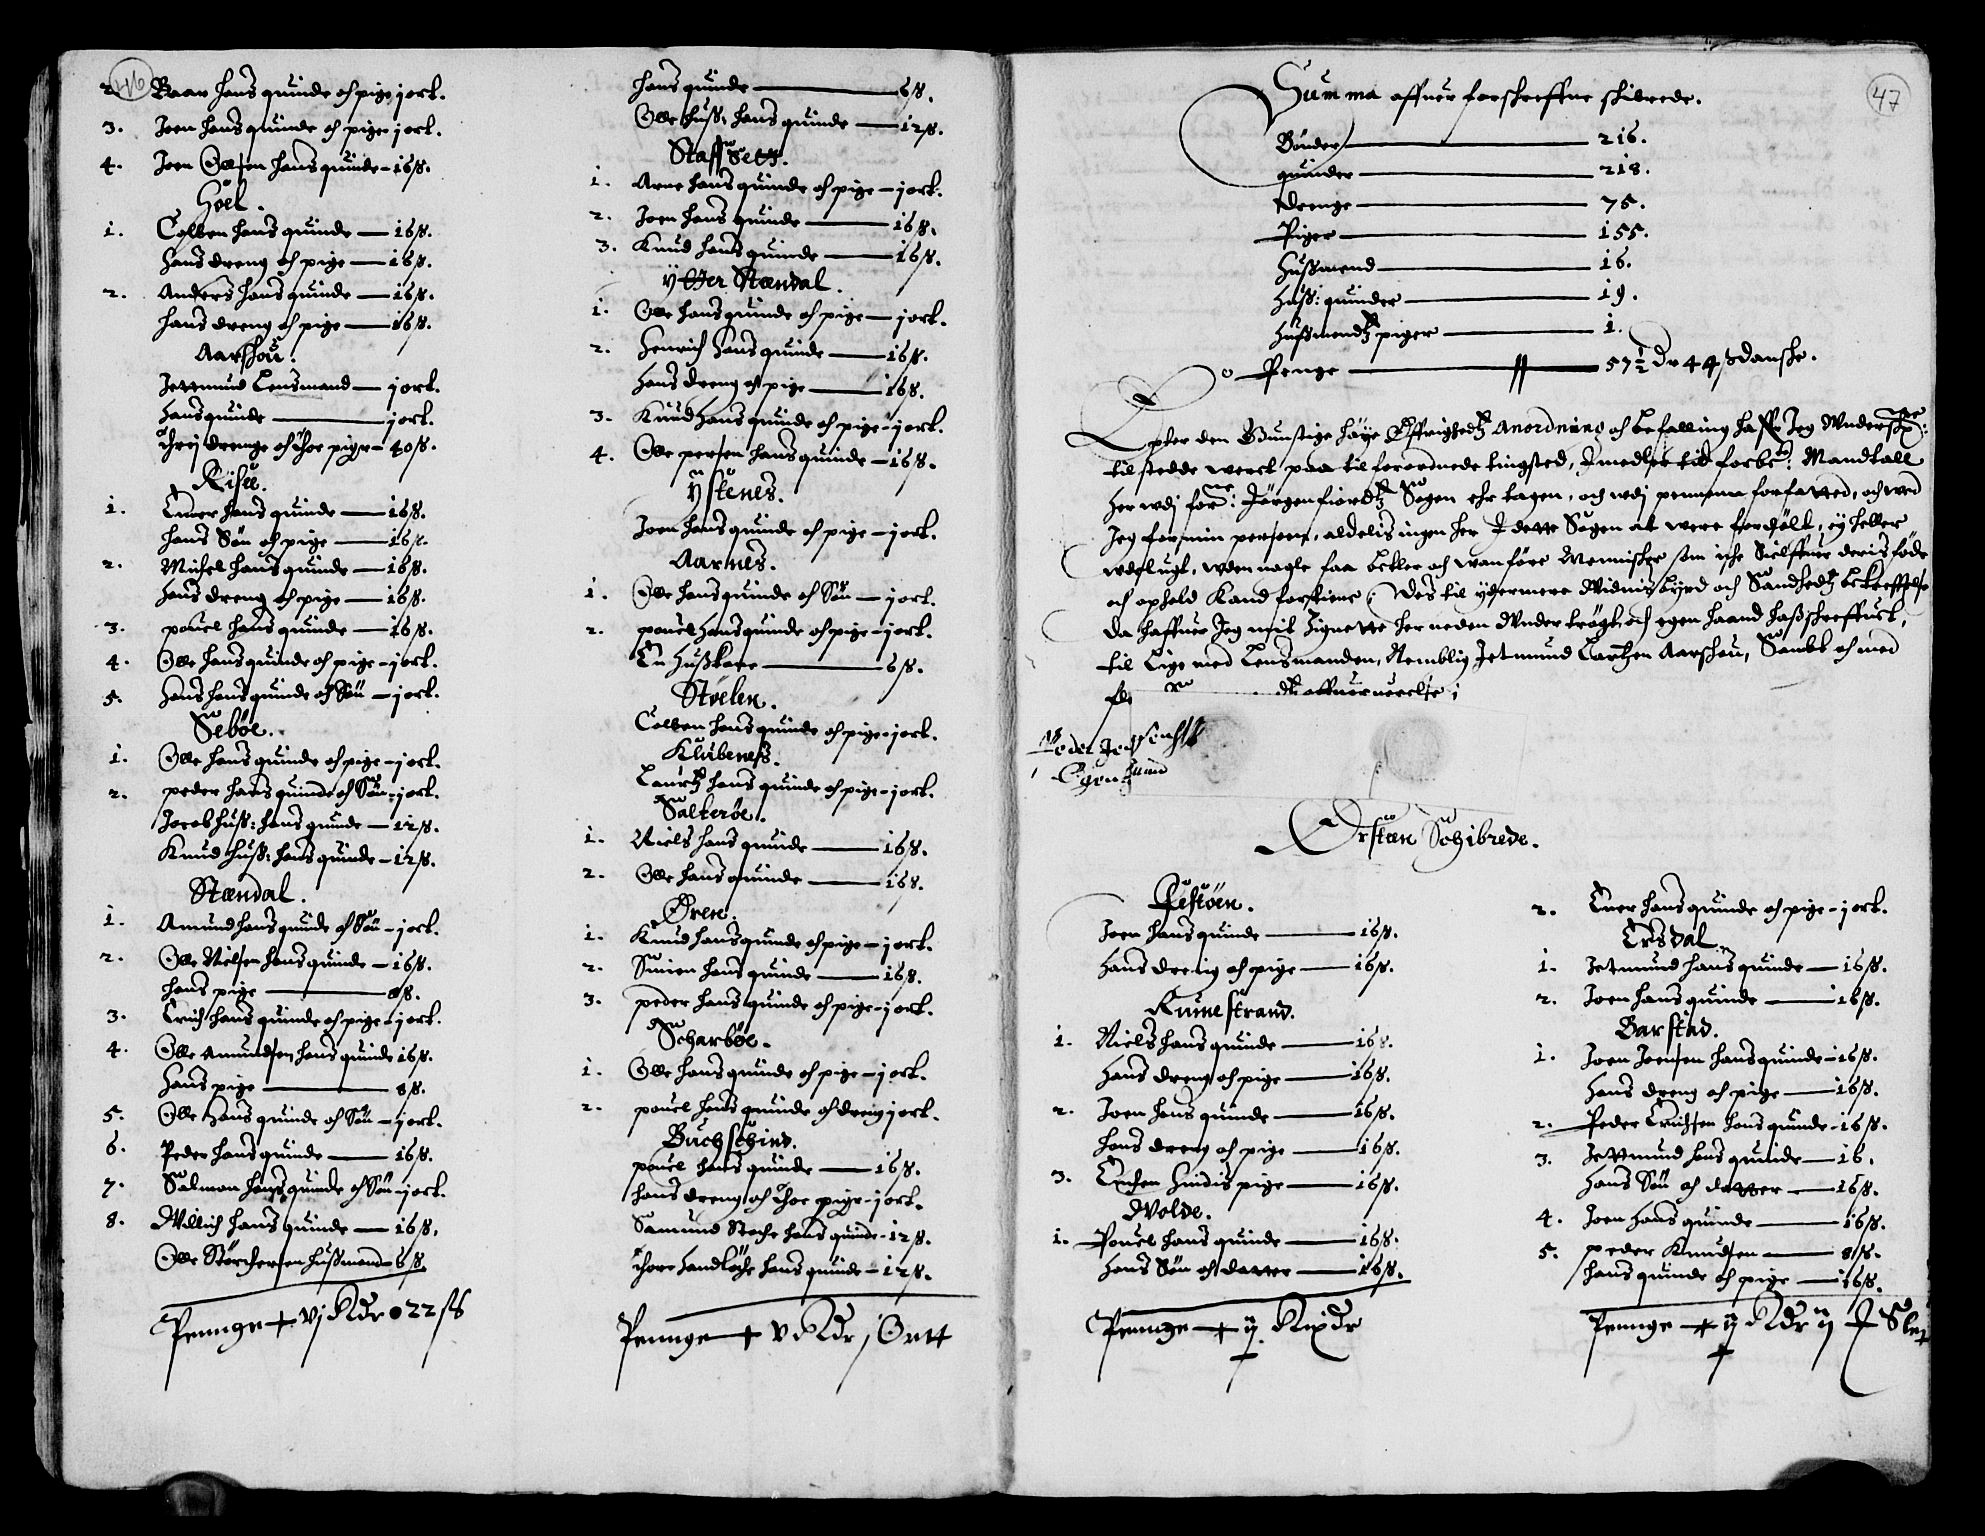 46
2. Baar hans quinde och pige jort.
3. Joen hans quinde och pige - jort.
4. Joen Ollsen hans quinde - 16 ß.
Hoel.
1. Colben hans quinde — 16 ß.
hans dreng och pige — 16 ß.
2. Anders hans quinde — 16 ß.
hans dreng och pige — 16 ß.
Aarshou.
Jettmund Lensmand — jort.
Hans quinde — jort.
threj drenge och thoe piger - 40 ß.
Risee.
1. Einer hans quinde — 16 ß.
hans Søn och pige — 16 ß.
2. Michel hans quinde — 16 ß.
hans dreng och pige — 16 ß.
3. pouel hans quinde — 16 ß.
4. Olle hans quinde och pige - jort.
5. hans hans quinde och Søn - jort.
Sebøe.
1. Olle hans quinde och pige - jort.
2. peder hans quinde och Søn - jort.
Jacob huß: hans quinde — 12 ß.
Knud huß: hans quinde - 12 ß.
Standal.
1. Amund hans quinde och Søn - jort.
2. Olle Nielsen hans quinde — 16 ß.
hans pige — 8 ß.
3. Erich hans quinde och pige - jort.
4. Olle Amundsen hans quinde 16 ß.
Hans pige — 8 ß.
5. Olle Hans quinde och Søn — jort.
6. Peder hans quinde — 16 ß.
7. Salmon hans quinde och Søn - jort.
8. Willich hans quinde — 16 ß.
Olle Størchersen hußmand - 6 ß.
Penninge + vj Rdr 22 ß
hans quinde — 6 ß.
Olle huß: hans quinde — 12 ß.
Staffsett.
1. Arne hans quinde och pige — jort.
2. Joen hans quinde — 16 ß.
3. Knud hans quinde — 16 ß.
ytter Standal.
1. Olle hans quinde och pige — jort.
2. Henrich hans quinde — 16 ß.
Hans dreng och pige — 16 ß.
3. Knud hans quinde och pige - jort.
4. Olle persen hans quinde — 16 ß.
ÿstenes.
Joen hans quinde och pige - jort.
Aarnes.
1. Olle hans quinde och Søn — jort.
2. pouel hans quinde och pige - jort.
En hußkone — 6 ß.
Støelen.
Colben hans quinde och pige - jort.
Klubeneß.
Lauritz hans quinde och pige - jort.
Salterøe.
1. Niels hans quinde — 16 ß.
2. Olle hans quinde — 16 ß.
Øren.
1. Knud hans quinde och pige - jort.
2. Suien hans quinde — 16 ß.
3. peder hans quinde och pige - jort.
Scharbøe.
1. Olle hans quinde och pige - jort.
2. pouel hans quinde och dreng jort.
Buchschind.
pouel hans quinde — 16 ß.
hans dreng och thoe piger - jort.
Samund Stoche hans quinde - 12 ß.
thore Handløche hans quinde - 12 ß.
Penninge + v Rdr j Ortt
47
Summa affuer forschreffne schibrede.
Bønder — 216.
quinder — 218.
Drenge — 75.
Piger — 155.
hußmend — 16.
huß: quinder — 19.
hußmendtz piger — 1.
Penge — 57½ Dr 44 ß danske.
Epter den Gunstige høye Øffrighedtz Anordning och befalling haffr Jeg Underschr:
til stedde werrt paa tilforordnede tingsted, Jmedler tid forbte: Mandtall
her udj forne: Jørgenfiordtz Sogen ehr tagen, och udj pennenn forfatted, och ved
Jeg for min person, aldelis ingen her J dette Sogen at were fordølt, ej heller
udelugt, uden nogle faa betler och wanføre Mennischer som iche Sielffuer deris føde
och ophold Kand fortiene; Des til ydermere Widnisbyrd och Sandhedtz bekreffelse
da haffuer Jeg mit Zignette her neden Under trøgt och egen haand haffr schreffuet,
til Lige med Lensmanden, Nemblig Jetmund Lartzen Aarshou, Sambt och med
offuerverelse;
Egen haand
Ørsten Schibrede.
Festøen.
Joen hans quinde — 16 ß.
Hans dreng och pige — 16 ß.
Rumestrand.
1. Niels hans quinde — 16 ß.
Hans dreng och pige — 16 ß.
2. Joen hans quinde — 16 ß.
hans dreng och pige — 16 ß.
3. Enchen hindis pige — 16 ß.
Wolde.
1. Pouel hans quinde — 16 ß.
Hans Søn och datter — 16 ß.
Penninge + ij Rixdr
2. Einer hans quinde och pige - jort.
Ersdal
1. Jetmund hans quinde — 16 ß.
2. Joen hans quinde — 16 ß.
Barstad.
1. Joen Joensen hans quinde - 16 ß.
Hans dreng och pige — 16 ß.
2. Peder Erichsen hans quinde - 16 ß.
3. Jettmund hans quinde — 16.
Hans Søn och datter — 16 ß.
4. Joen hans quinde — 16 ß.
5. peder Knudsen — 8 ß.
hans quinde och pige — 16 ß.
Penninge + ij Rdr ij